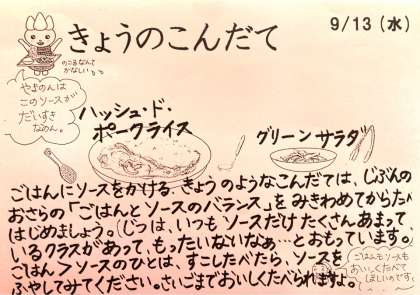 きょうのこんだて
9/13(水)
のこるなんて
かなしい。。
やきのんは
このソースが
だいすき
なのん。
ハッシュ・ド・
ポークライス
グリーンサラダ
ごはんにソースをかける きょうのようなこんだては、じぶんの
おさらの「ごはんとソースのバランス」をみきわめてからたべ
はじめましょう。(じつは、いつもソースだけたくさんあまって
いるクラスがあって、もったいないなぁ…とおもっています。)
ごはん>ソースのひとは、すこしたべたら、ソースを
ふやしてみてください。さいごまでおいしくたべられますよ。
ごはんもソースも
おいしくたべて
ほしいのです。